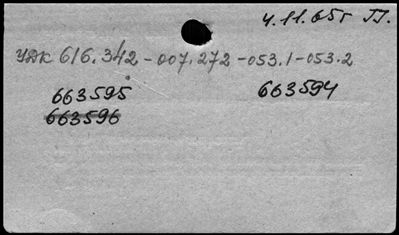 4.11.65г ГГ.
УДК 616.342-007.272-053.1-053.2
663595 663594
663596